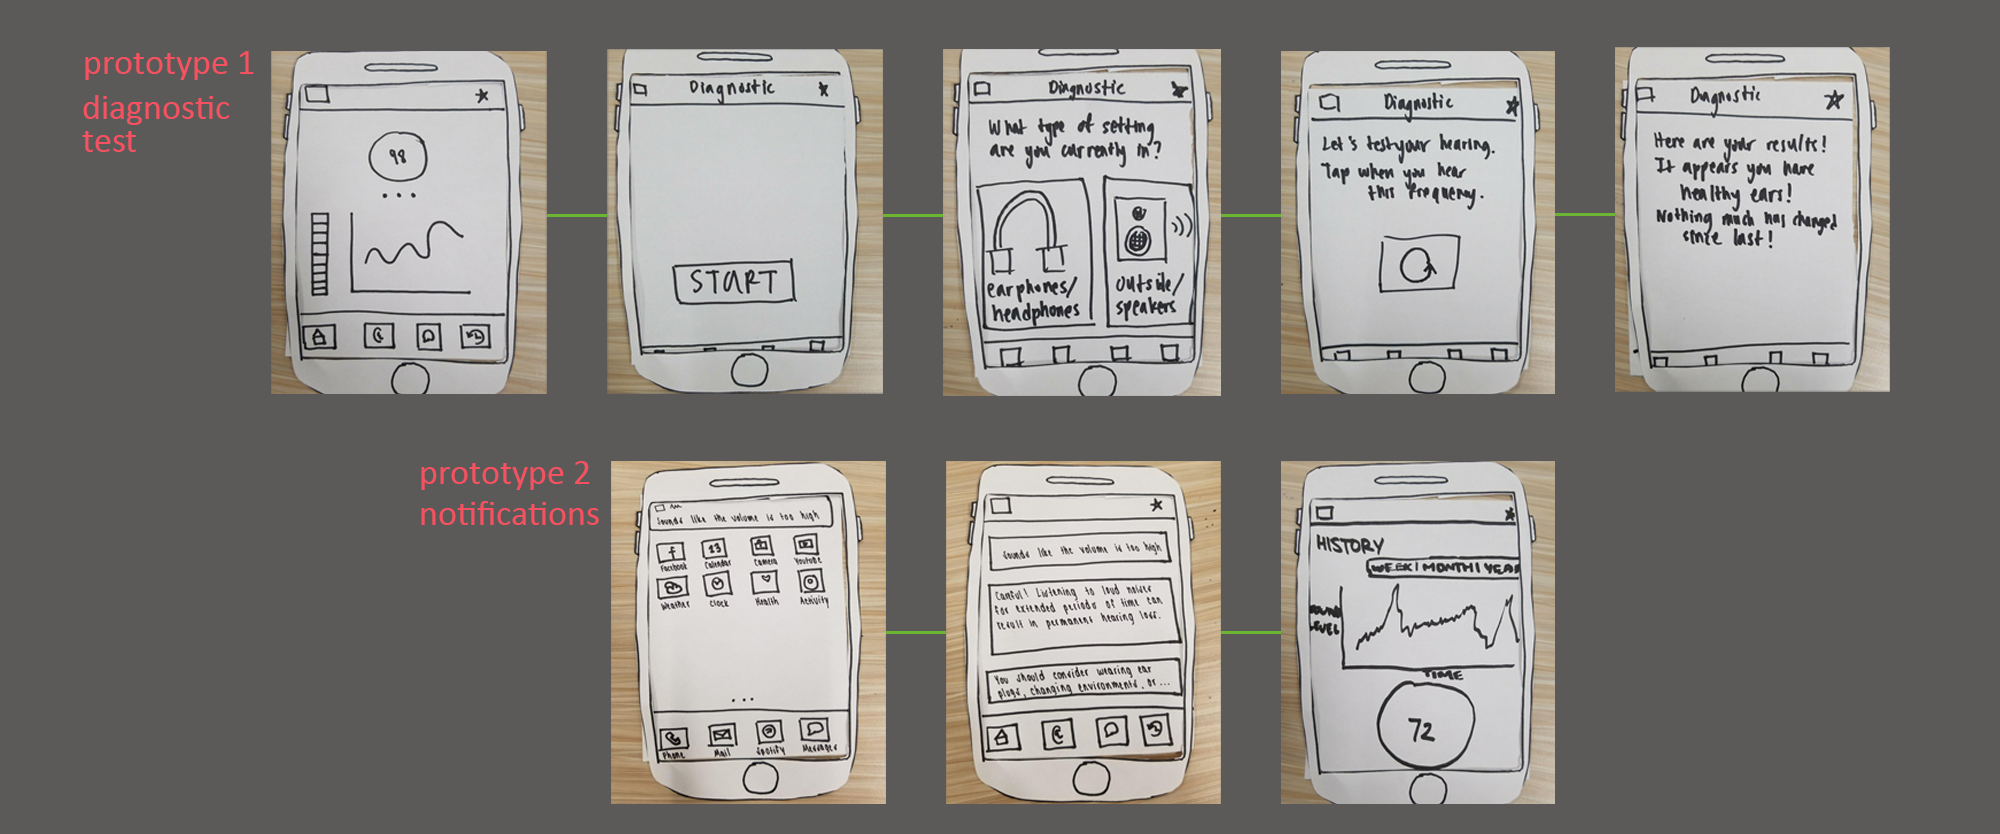 prototype 1
diagnostic
test
98
Diagnostic
START
Diagnostic
What type of setting
are you currently in?
earphones/
headphones
outside/
speakers
Diagnostic
Let's test your hearing.
Tap when you hear
this frequency.
Diagnostic
Here are your results!
It appears you have
healthy ears!
Nothing much has changed
since last!
prototype 2
notifications
Sounds like the volume is too high
Facebook
13
Calendar
Camera
Youtube
Weather
Clock
Health
Activity
Phone
Mail
Spotify
Messages
Sounds like the volume is too high
Careful! Listening to loud noises
for extended periods of time can
result in permanent hearing loss.
You should consider wearing ear
plugs, changing environments, or ...
HISTORY
WEEK | MONTH | YEAR
LEVEL
TIME
72